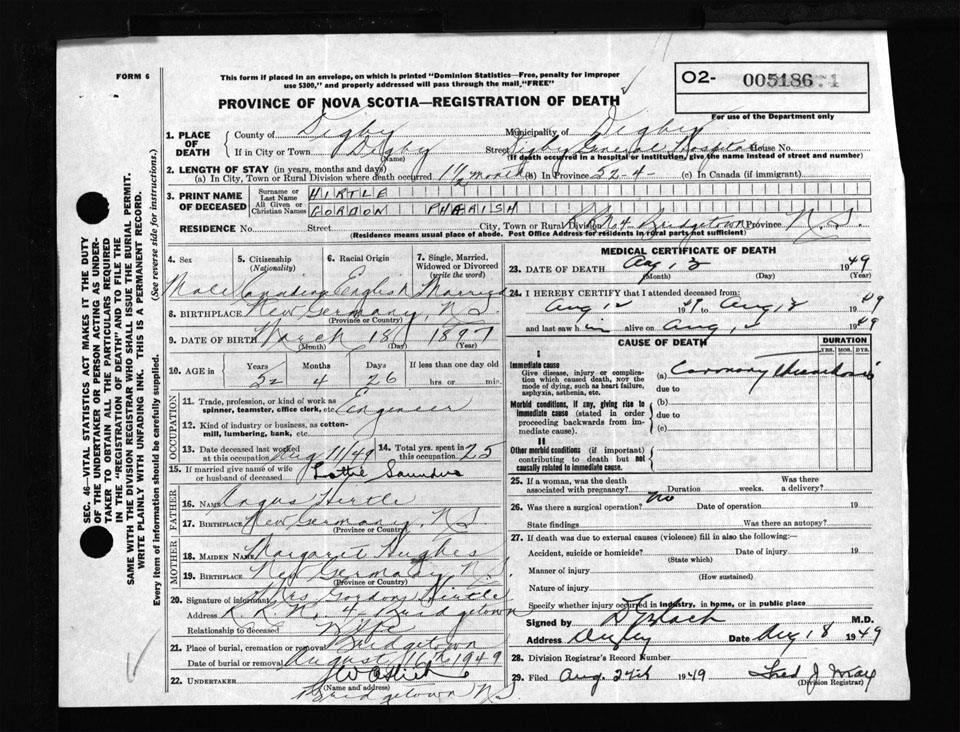 FORM 6
This form if placed in an envelope, on which is printed "Dominion Statistics—Free, penalty for improper
use $300," and properly addressed will pass through the mail, "FREE"
PROVINCE OF NOVA SCOTIA—REGISTRATION OF DEATH
O2- 005186
For use of the Department only
SEC. 46—VITAL STATISTICS ACT MAKES IT THE DUTY
OF THE UNDERTAKER OR PERSON ACTING AS UNDER-
TAKER TO OBTAIN ALL THE PARTICULARS REQUIRED
IN THE "REGISTRATION OF DEATH" AND TO FILE THE
SAME WITH THE DIVISION REGISTRAR WHO SHALL ISSUE THE BURIAL PERMIT.
WRITE PLAINLY WITH UNFADING INK. THIS IS A PERMANENT RECORD.
Every item of information should be carefully supplied. (See reverse side for instructions.)
1. PLACE OF DEATH
County of Digby Municipality of Digby
If in City or Town Digby (Name) Street Digby General Hospital House No.
(If death occurred in a hospital or institution, give the name instead of street and number)
2. LENGTH OF STAY (in years, months and days)
(a) In City, Town or Rural Division where death occurred 1 1/2 months (b) In Province 52-4- (c) In Canada (if immigrant)
3. PRINT NAME OF DECEASED
Surname or Last Name HIRTLE
All Given or Christian Names GORDON PHARISH
RESIDENCE No. Street City, Town or Rural Division R.R. No 4 Bridgetown Province N.S.
(Residence means usual place of abode. Post Office Address for residents in rural parts not sufficient)
4. Sex 5. Citizenship (Nationality) 6. Racial Origin 7. Single, Married, Widowed or Divorced (write the word)
Male Canadian English Married
8. BIRTHPLACE New Germany, N.S.
(Province or Country)
9. DATE OF BIRTH March 18 1897
(Month) (Day) (Year)
10. AGE in Years Months Days If less than one day old
52 4 26 hrs. or min.
OCCUPATION
11. Trade, profession, or kind of work as
spinner, teamster, office clerk, etc. Engineer
12. Kind of industry or business, as cotton-
mill, lumbering, bank, etc.
13. Date deceased last worked at this occupation Aug 11/49 14. Total yrs. spent in this occupation 25
15. If married give name of wife
or husband of deceased Lottie Saunders
FATHER
16. NAME Angus Hirtle
17. BIRTHPLACE New Germany, N.S.
(Province or Country)
MOTHER
18. MAIDEN NAME Margaret Hughes
19. BIRTHPLACE New Germany N.S.
(Province or Country)
20. Signature of informant Mrs Gordon Hirtle
Address R.R. No. 4 Bridgetown
Relationship to deceased Wife
21. Place of burial, cremation or removal Bridgetown
Date of burial or removal August 16th 1949
22. UNDERTAKER
(Name and address)
Bridgetown N.S.
MEDICAL CERTIFICATE OF DEATH
23. DATE OF DEATH Aug, 1949
(Month) (Day) (Year)
24. I HEREBY CERTIFY that I attended deceased from:
Aug 1949 to Aug, 1949
and last saw him alive on Aug, 1949
CAUSE OF DEATH DURATION
YRS. MOS. DYS.
I
Immediate cause
Give disease, injury or complica-
tion which caused death, not the
mode of dying, such as heart failure,
asphyxia, asthenia, etc.
(a) Coronary Thrombosis
due to
Morbid conditions, if any, giving rise to
immediate cause (stated in order
proceeding backwards from im-
mediate cause).
(b)
due to
(c)
II
Other morbid conditions (if important)
contributing to death but not
causally related to immediate cause.
25. If a woman, was the death
associated with pregnancy? Duration weeks. Was there a delivery?
26. Was there a surgical operation? No Date of operation 19
State findings Was there an autopsy?
27. If death was due to external causes (violence) fill in also the following:
Accident, suicide or homicide? Date of injury 19
(State which)
Manner of injury
(How sustained)
Nature of injury
Specify whether injury occurred in industry, in home, or in public place
Signed by Black M.D.
Address Digby Date Aug 18 1949
28. Division Registrar's Record Number
29. Filed Aug. 24th 1949 Fred J.
(Division Registrar)